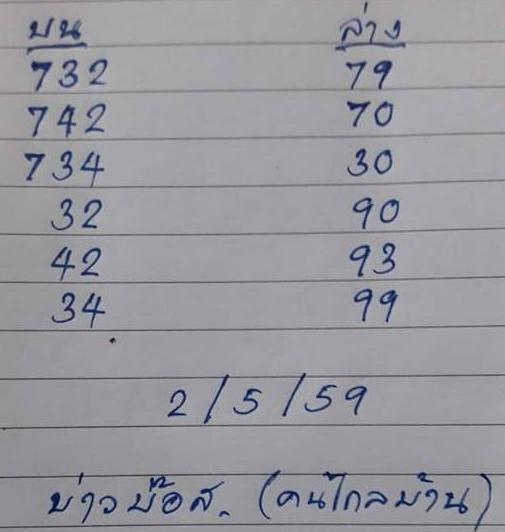 บน ล่าง
732 79
742 70
734 30
32 90
42 93
34 99
2/5/59
บ่าวบ๊อส. (คนไกลบ้าน)